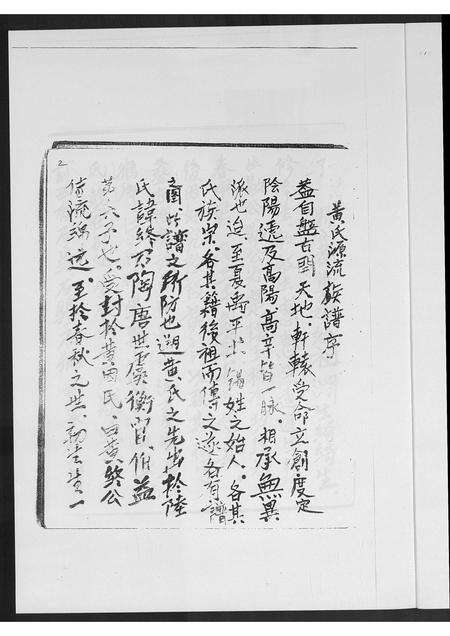 黄氏源流族譜序
蓋自盤古開天地、軒轅受命立創度定
陰陽遞及高陽高辛皆一脉、相承無異
派也迨、至夏禹平水錫姓之始人、各其
氏族宗、各其籍後祖而傳之遂各有譜
圖此譜之所防也遡黄氏之先出於陸
氏諱終六陶唐世官衡官、伯益
第六子也、受封於黄因氏、曰黄、終公
传流 遠、至於春秋之世、 一
2